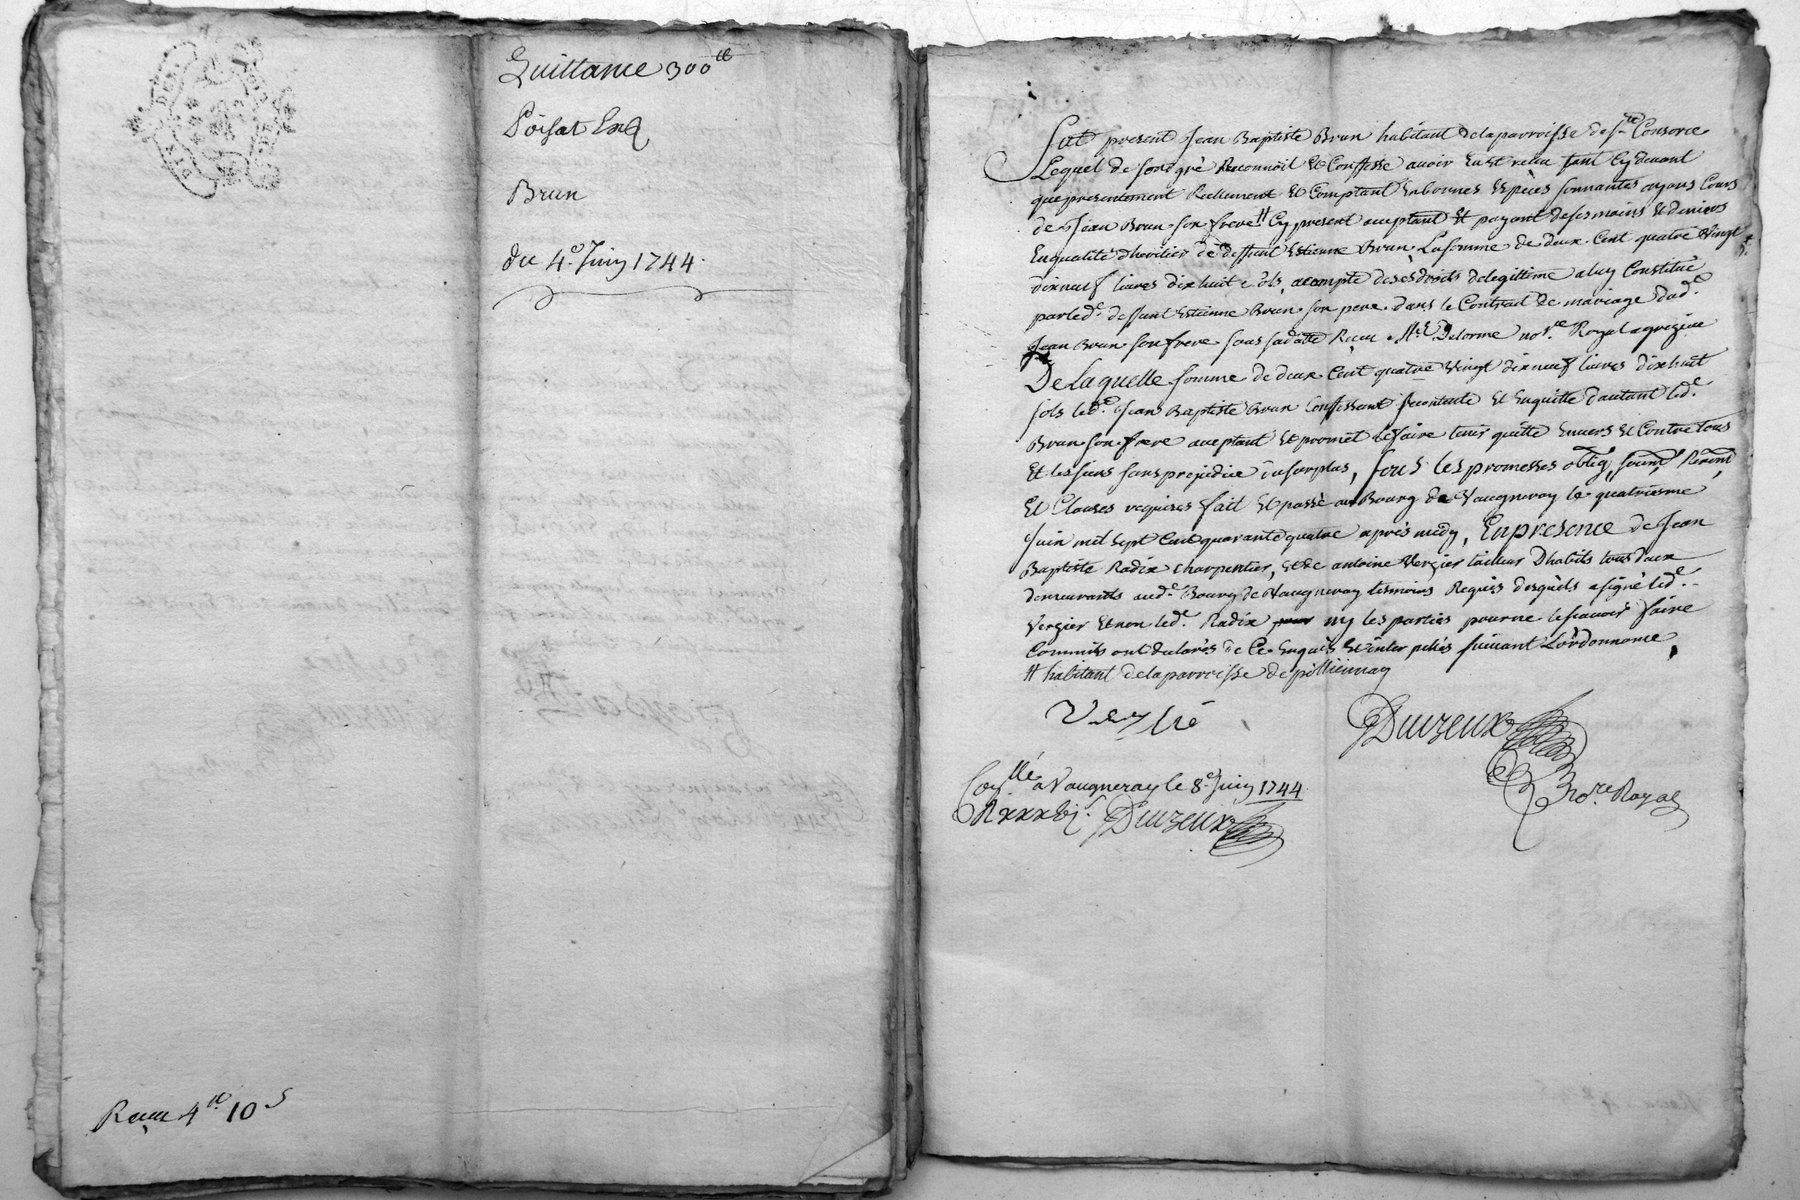 Quittance 300ᵗᵗ
Brun
du 4.ᵉ Juin 1744.
Reçu 4ᵗᵗ 10ˢ
Fut present Jean Baptiste Brun habitant de la parroisse de Sᵗᵉ Consorce
Lequel de son gré Reconnoit Et Confesse avoir Eu Et reçu tant Cy devant
que presentement Reellement Et Comptant En bonnes Espèces sonnantes ayans Cours
de Jean Brun son frere # Cy present acceptant Et payant de ses mains Et deniers
En qualité dheritier de deffunt Estienne Brun, La somme de deux Cent quatre Vingt
dix neuf livres dix huit sols, acompte de ses droits de legittime a luy Constitué
par led.ᵗ deffunt Estienne Brun son pere dans le Contract de mariage dud.ᵗ
Jean Brun son frere sous sa datte Reçu Mᵉ Delorme noʳᵉ Royal a grezieu
De laquelle somme de deux Cent quatre Vingt dix neuf livres dix huit
sols led.ᵗ Jean Baptiste Brun Confessant se contente Et En quitte d'autant led.ᵗ
Brun son frere acceptant Et promet le faire tenir quitte Envers Et Contre tous
Et les siens sans prejudice du surplus, sous les promesses oblig. soum. Renon.
Et Clauses requises fait Et passé au Bourg de Vaugneray le quatriesme
Juin mil sept Cent quarante quatre après midy, En presence de Jean
Baptiste Radix charpentier, Et de antoine Verzier tailleur D'habits tous deux
demeurants aud.ᵗ Bourg de Vaugneray tesmoins Requis desquels a signé led.ᵗ
Verzier Et non led.ᵗ Radix ny les parties pour ne le scavoir faire
Comme ils ont declarés de Ce Enquis Et interpellés suivant L'ordonnance,
# habitant de la parroisse de pollieinnay
Duvzeux
noʳᵉ Royal
Con.ˡˡᵉ a Vaugneray le 8.ᵉ Juin 1744
Duvzeux